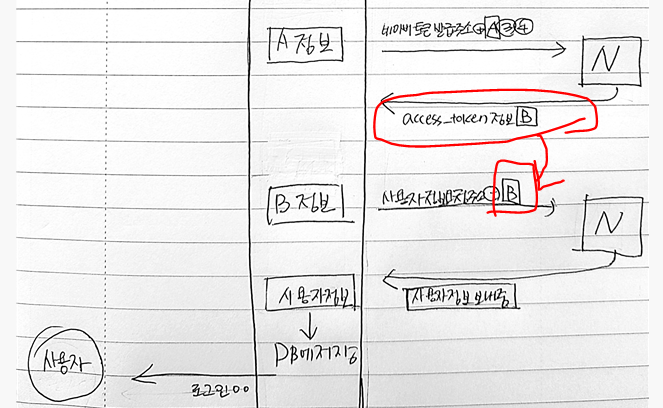 A 정보
네이버 토큰 발급주소 + A ③ ④
N
access_token 정보 B
B 정보
B
N
사용자정보
사용자정보 보내줌
DB에 저장
사용자
로그인 OO